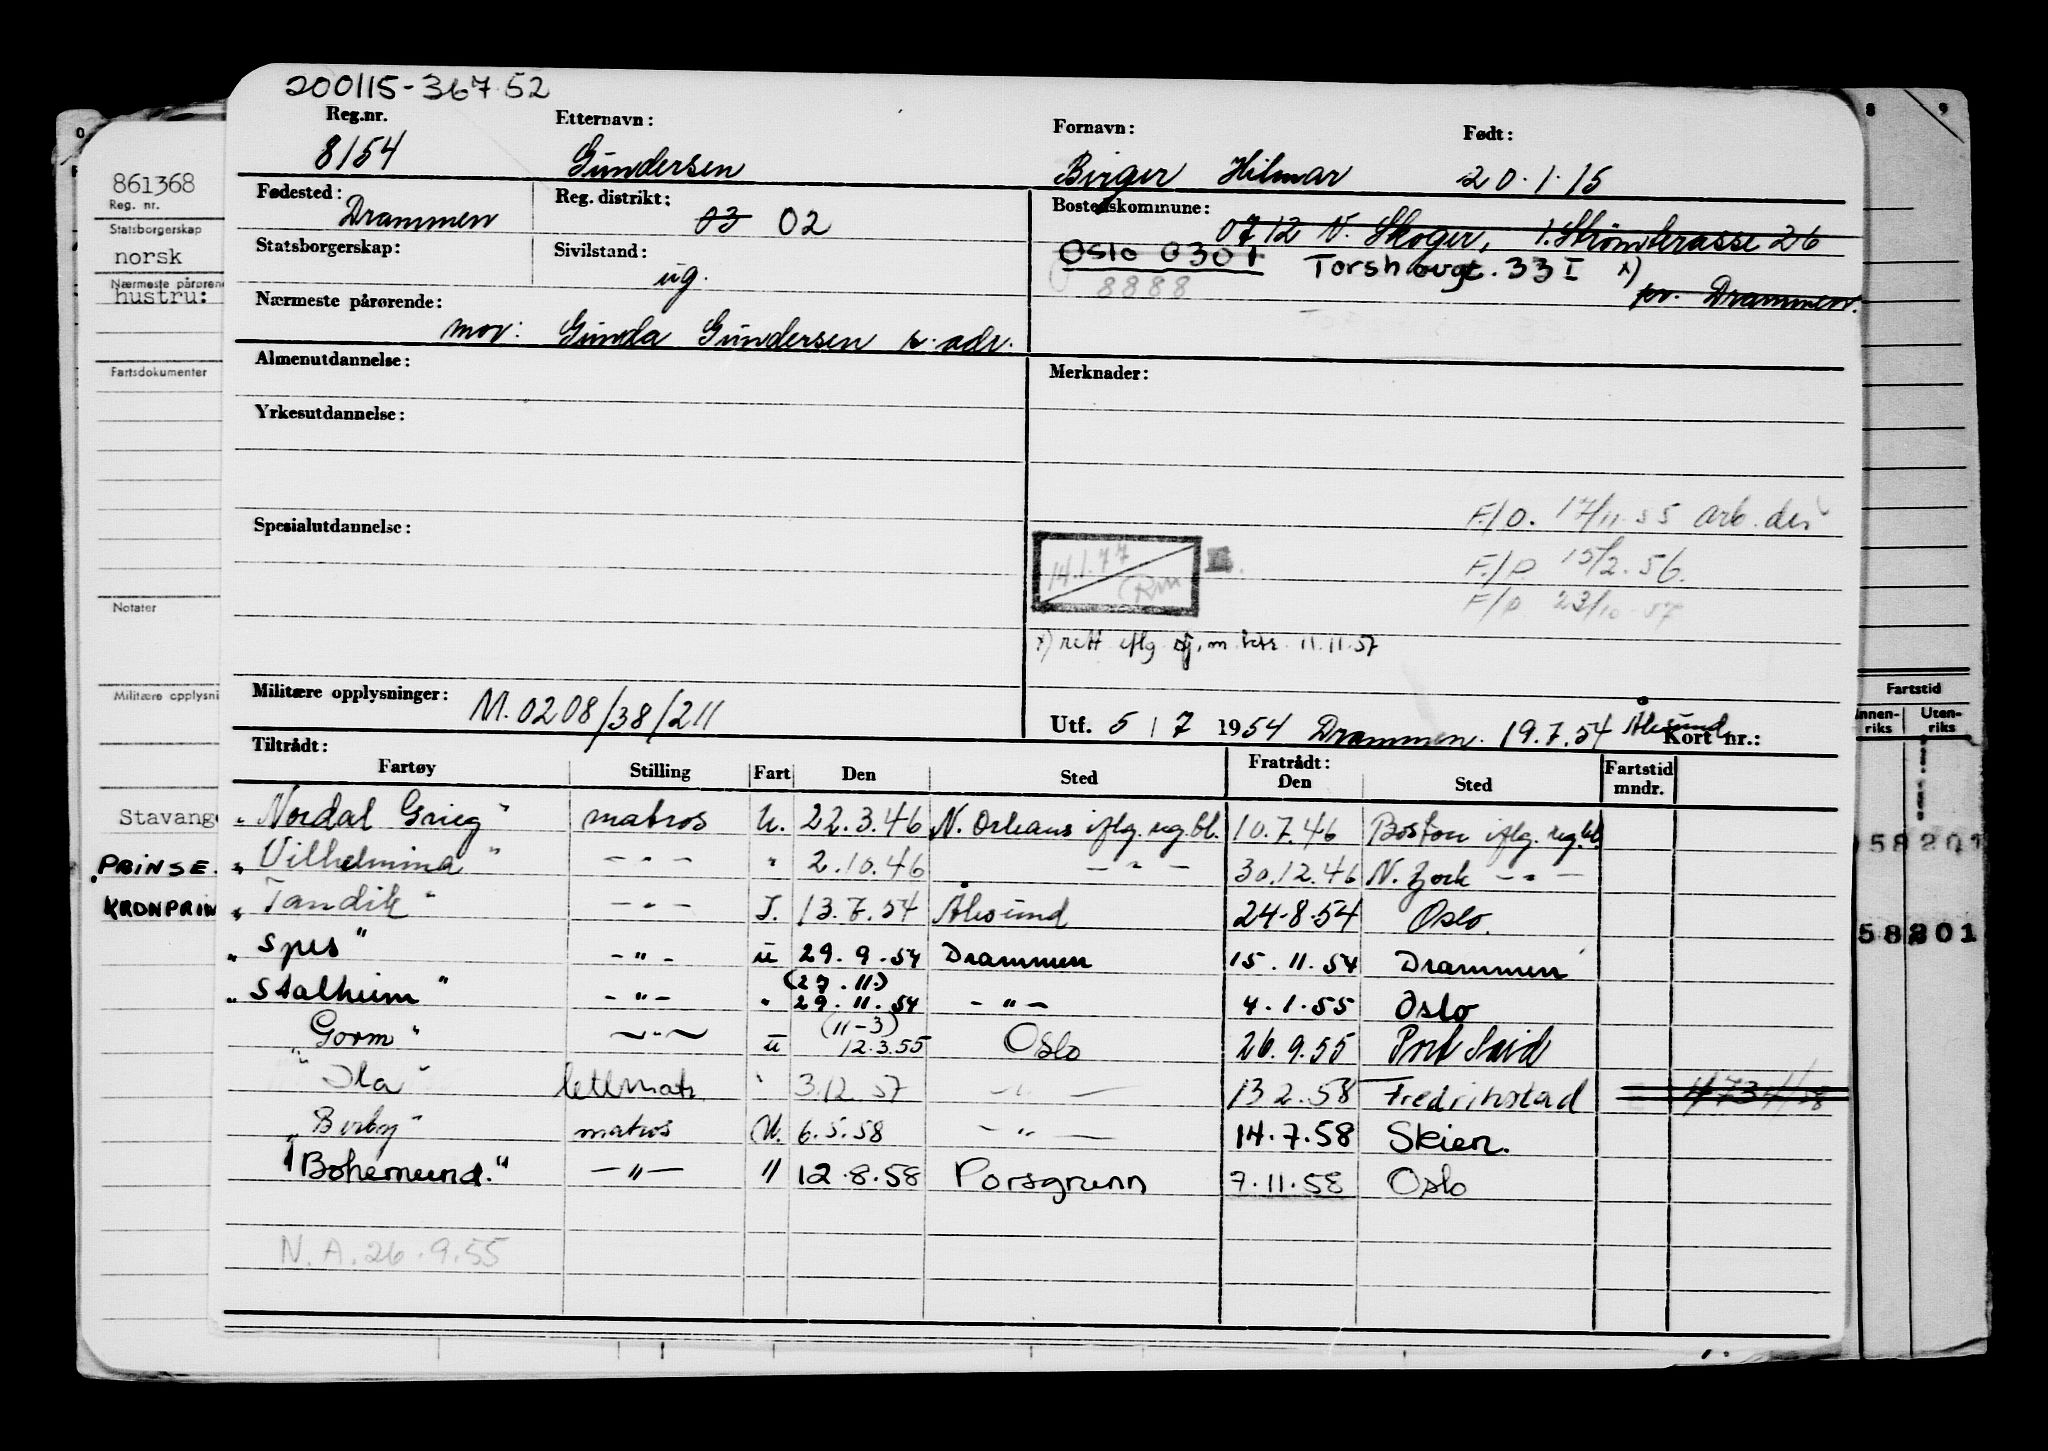 200115-367 52
Reg.nr. Etternavn: Fornavn: Født:
8154 Gundersen Birger Hilmar 20.1.15
Fødested: Drammen Reg. distrikt: 03 02 Bostedskommune: 0712 N. Skoger, 1. Strømterrasse 26
Statsborgerskap: Sivilstand: ug. Oslo 0301 Torshovgt. 33 I x)
8888 pr. Drammen.
Nærmeste pårørende:
mor: Gunda Gundersen s. adr.
Almenutdannelse: Merknader:
Yrkesutdannelse:
F./O. 17/11.55 arb. des
Spesialutdannelse:
14.1.77 Rm
F./P. 15/2.56.
F/P 23/10-57
x) rett iflg. 11.11.57
Militære opplysninger: M.0208/38/211
Utf. 5/7 1954 Drammen. 19.7.54 Ålesund Kort nr.:
Tiltrådt: Fratrådt:
Fartøy Stilling Fart Den Sted Den Sted Fartstid mndr.
"Nordal Grieg" matros U. 22.3.46 N. Orleans iflg. reg.bl. 10.7.46 Boston iflg. reg.bl
"Vilhelmina" - " - " 2.10.46 - " - 30.12.46 N. York - " -
"Tandik" - " - I. 13.7.54 Ålesund 24.8.54 Oslo.
"Spes" - " - u 29.9.54 Drammen 15.11.54 Drammen
"Stalheim" - " - " (27.11.) 29.11.54 - " - 4.1.55 Oslo
"Gorm" - " - u (11-3) 12.3.55 Oslo 26.9.55 Port Said
"Ila" lettmatr. " 3.12.57 - " - 13.2.58 Fredrikstad
"Borby" matros U. 6.5.58 - " - 14.7.58 Skien.
"Bohemund." - " - " 12.8.58 Porsgrunn 7.11.58 Oslo
N.A. 26.9.55
861368
Reg. nr.
Statsborgerskap
norsk
Nærmeste pårøren
hustru:
Fartsdokumenter
Notater
Militære opplysni
Stavang
PRINSE
KRONPRIN
8 9
Fartstid
Innen-riks Uten-riks
58201
58201